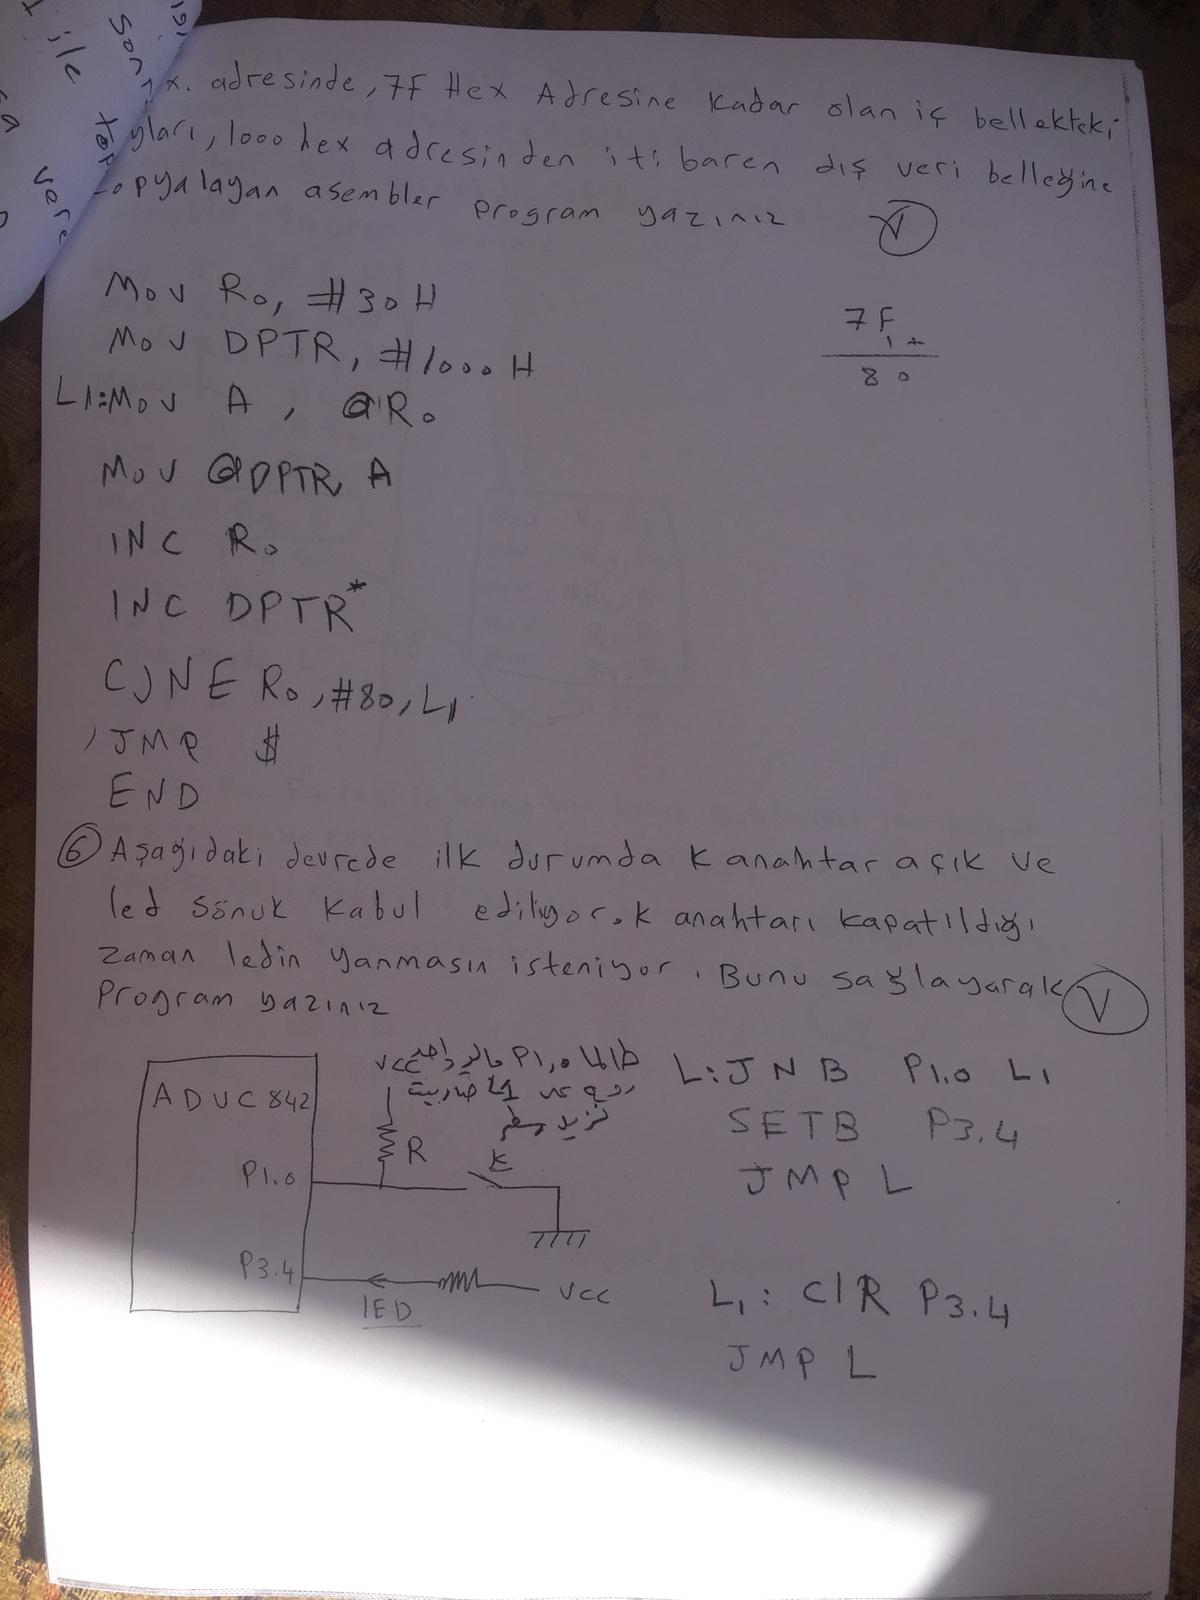 x. adresinde, 7f Hex Adresine Kadar olan iç bellekteki
yları, 1000 hex adresinden itibaren dış veri belleğine
opyalayan asembler program yazınız
V
Mov R0, #30H
Mov DPTR, #1000H
L1:Mov A, @R0
Mov @DPTR, A
INC R0
INC DPTR*
CJNE R0, #80, L1
JMP $
END
7F
1 +
80
6 Aşağıdaki devrede ilk durumda K anahtar açık ve
led Sönuk Kabul ediliyor. K anahtarı kapatıldığı
zaman ledin yanmasın isteniyor. Bunu sağlayarak
Program yazınız
V
ADUC842
P1.0
P3.4
VCC
R
K
lED
VCC
طالما P1,0
L: JNB P1.0 L1
SETB P3.4
JMP L
L1: ClR P3.4
JMP L